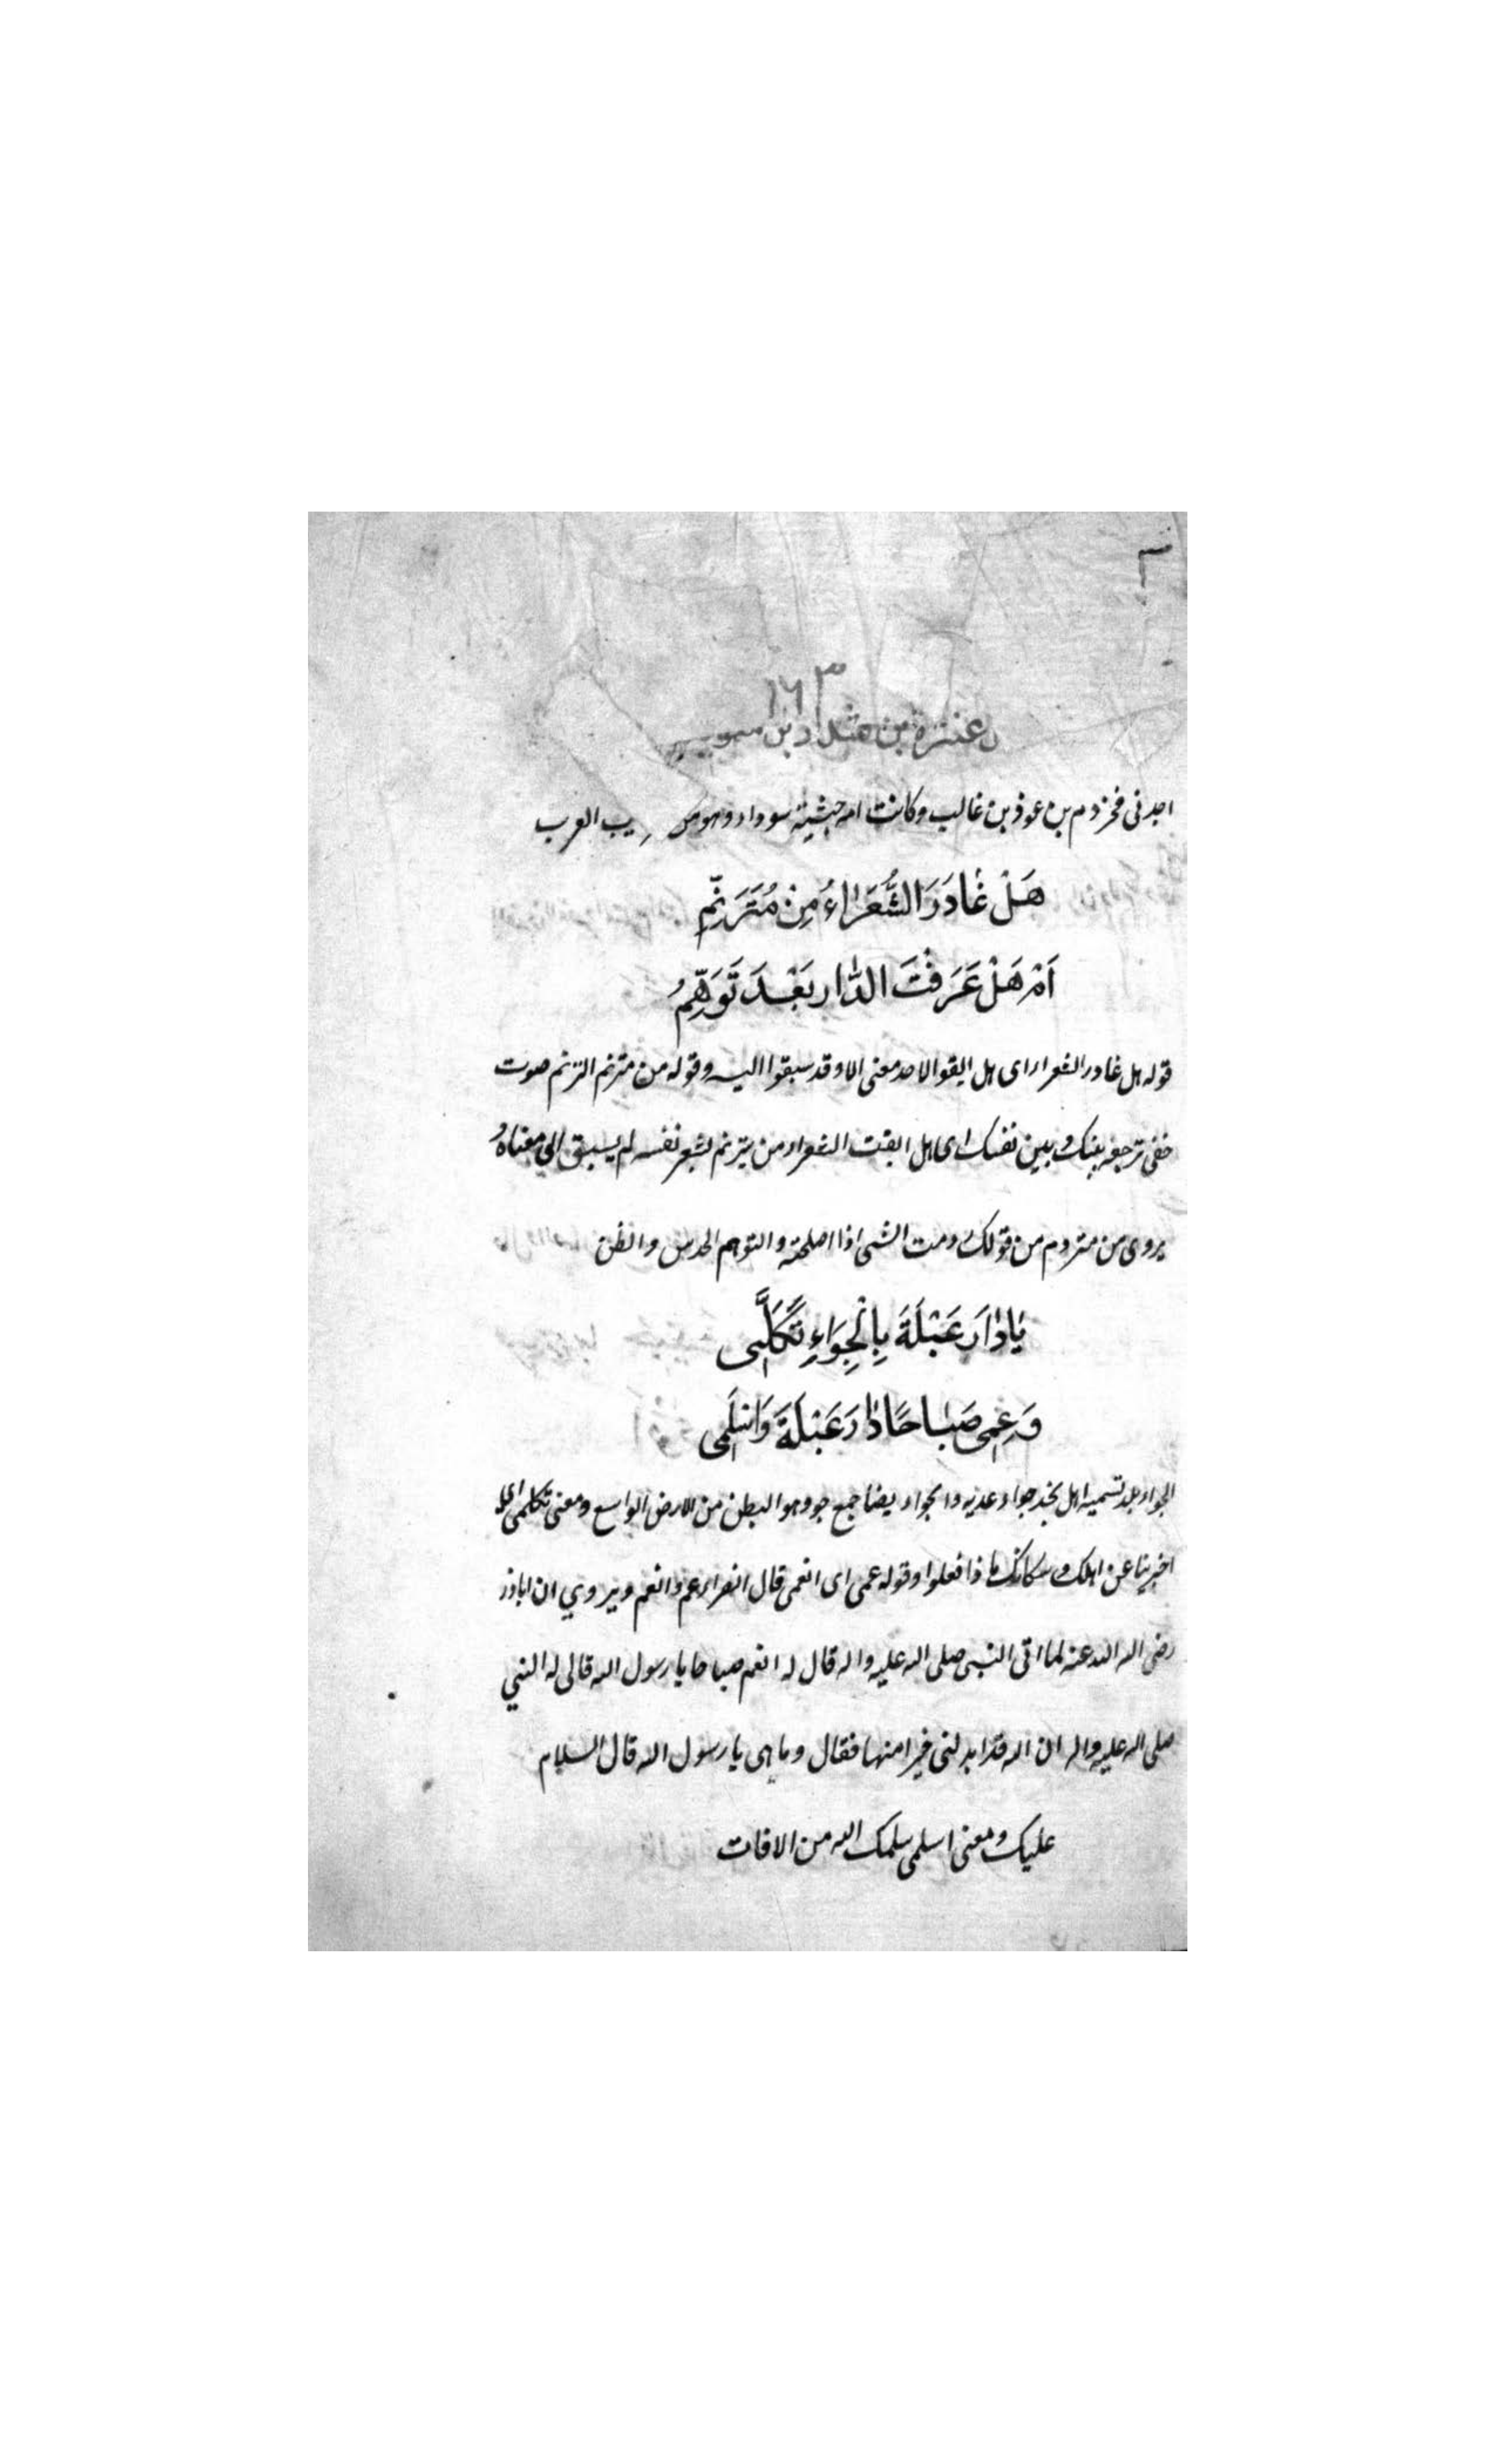 ١٦٣
عنترة بن شداد بن
احد نى مخزوم بن عوذ بن غالب وكانت امه حبشية سوداء وهو من يب العرب
هَلْ غَادَرَ الشُّعَرَاءُ مِنْ مُتَرَنِّمِ
اَمْ هَلْ عَرَفْتَ الدَّارَ بَعْدَ تَوَهُّمِ
قوله هل غادر الشعراء اى هل ابقوا لاحد معنى الا وقد سبقوا اليه وقوله من مترنم الترنم صوت
خفى ترجعه بينك وبين نفسك اى هل ابقت الشعراء من يترنم لشعر نفسه لم يسبق الى معناه و
يروى من متردم من قولك ردمت الشى اذا اصلحته والتوهم الحدس والظن
يَادَارَ عَبْلَةَ بِالْجِوَاءِ تَكَلَّمِى
وَعِمِى صَبَاحًا دَارَ عَبْلَةَ وَاسْلَمِى
الجواء بلد تسميه اهل نجد جواء عدنه والجواء يضا جمع جو وهو البطن من الارض الواسع ومعنى تكلمى اى
اخبرينا عن اهلك وسكانك ما ذا فعلوا وقوله عمى اى انعمى قال الفراء عم وانعم ويروي ان اباذر
رضى الله الله عنه لما اتى النبى صلى الله عليه واله قال له انعم صباحا يا رسول الله قال له النبي
صلى الله عليه واله ان الله قد ابدلنى خيرا منها فقال وما هى يا رسول الله قال السلام
عليك ومعنى اسلمى سلمك الله من الافات